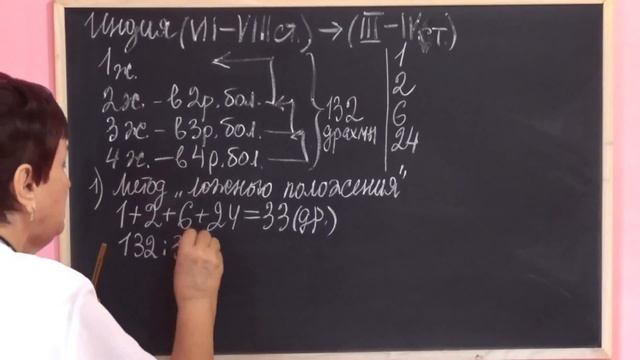 Индия (VII-VIII ст.) → (III-IV ст.)
1 ж.
2 ж. - в 2 р. бол.
3 ж. - в 3 р. бол.
4 ж. - в 4 р. бол.
132
драхмы
1
2
6
24
1) Метод „ложного положения"
1+2+6+24=33 (др.)
132:3